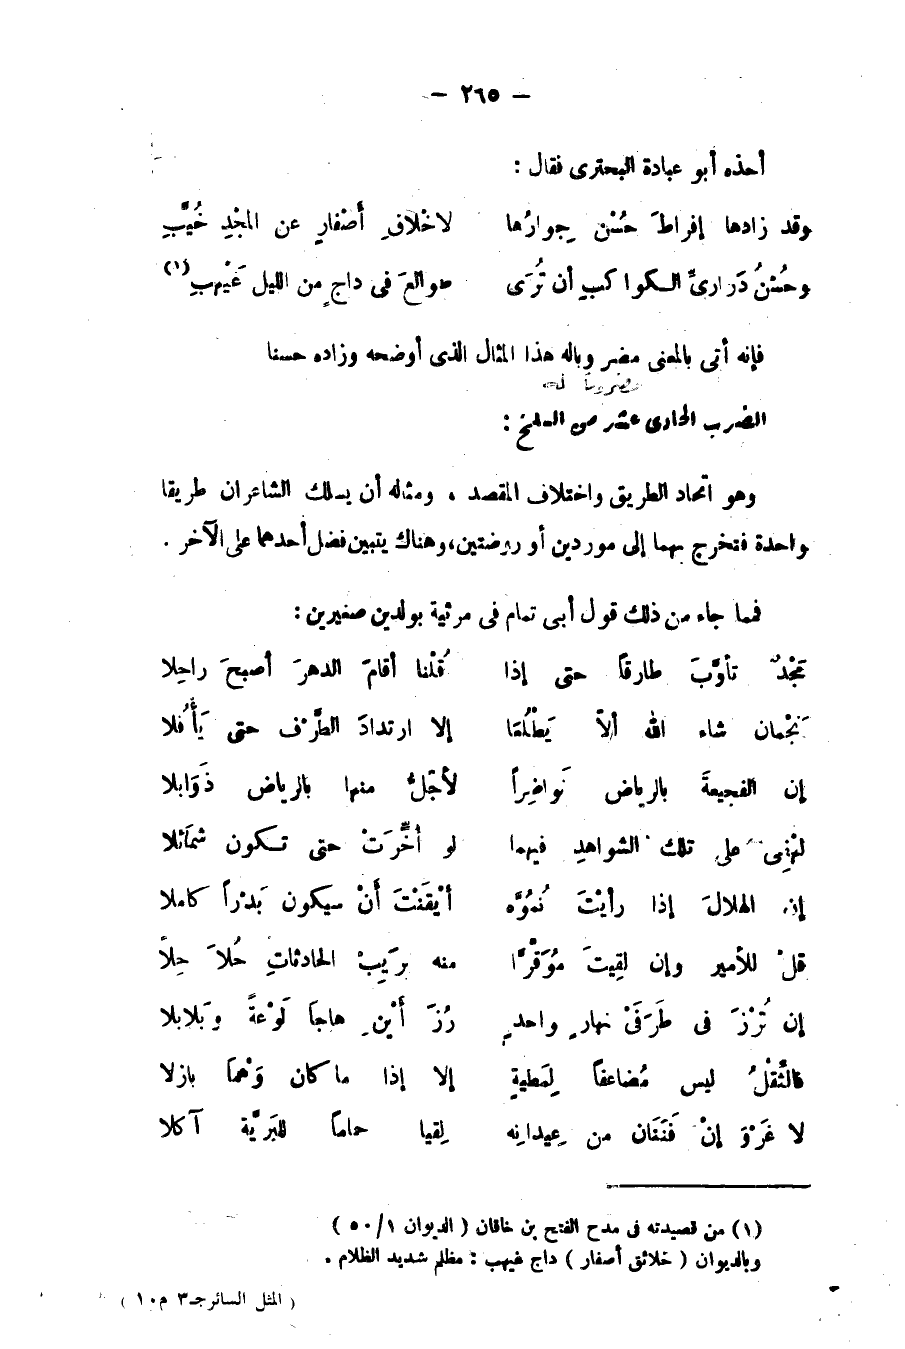 — ٢٦٥ —
أخذه أبو عبادة البحترى فقال :
وقد زادها إفراطَ حُسْنٍ جِوارُها لاخْلاقِ أصْفارٍ عن المجْدِ خُيَّبِ
وحُسْنُ دَرارىِّ الكواكبِ أن تُرَى طوالعَ فى داجٍ من الليل غَيْهبِ(١)
فإنه أتى بالمعنى مضروباً له هذا المثال الذى أوضحه وزاده حسنا
مضروباً له
الضرب الحادى عشر من السلخ :
وهو اتحاد الطريق واختلاف المقصد ، ومثاله أن يسلك الشاعران طريقا
واحدة فتخرج بهما إلى موردين أو روضتين، وهناك يتبين فضل أحدهما على الآخر .
فمما جاء من ذلك قول أبى تمام فى مرثية بولدين صغيرين :
مَجْدٌ تأوَّبَ طارقاً حتى إذا قُلْنا أقامَ الدهرَ أصبحَ راحِلا
نَجْمان شاء الله ألاَّ يَطْلُعَا إلا ارتدادَ الطَّرْفِ حتى يَأْفُلا
إن الفجيعةَ بالرياض نَواضِراً لأجَلُّ منها بالرياض ذَوَابلا
لهْفِى على تلك الشواهدِ فيهما لو أُخِّرَتْ حتى تكون شمَائلا
إن الهلالَ إذا رأيْتَ نُموَّه أيْقَنْتَ أنْ سيكون بَدْراً كاملا
قلْ للأمير وإن لقِيتَ مُوَقَّرًا منه برَيْبِ الحادثاتِ حُلاَحِلاً
إن تُرْزَ فى طَرَفَىْ نهارٍ واحدٍ رُزْأَيْنِ هاجَا لَوْعةً وبَلابلا
فالثِّقْلُ ليس مُضاعفاً لِمَطيةٍ إلا إذا ما كان وَهْماً بازلا
لا غَرْوَ إنْ فَنَنَان من عِيدانِه لِقيا حماماً للبَريَّة آكلا
(١) من قصيدته فى مدح الفتح بن خاقان ( الديوان ١/٥٠ )
وبالديوان ( خلائق أصفار ) داج غيهب : مظلم شديد الظلام .
( المثل السائر جـ٣ م١٠ )